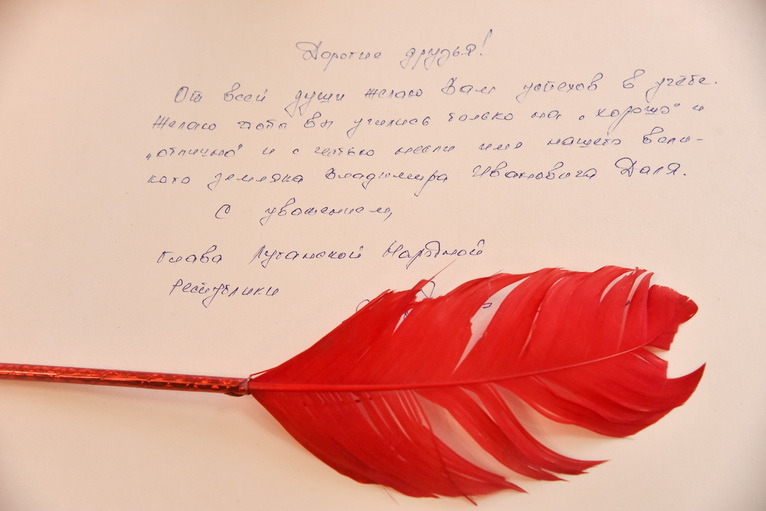 Дорогие друзья!
От всей души желаю Вам успехов в учебе.
Желаю чтобы Вы учились только на „хорошо" и
„отлично" и с честью несли имя нашего вели-
кого земляка Владимира Ивановича Даля.
С уважением,
Глава Луганской Народной
Республики